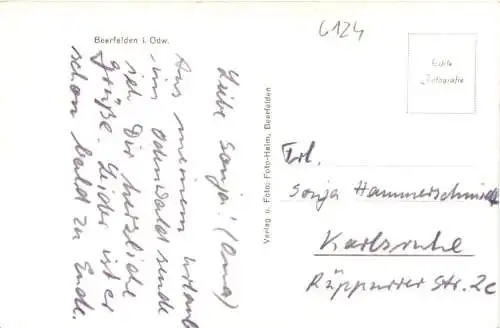 6124
Beerfelden i. Odw.
Echte
Fotografie
Liebe Sonja! (Oma)
Aus meinem Urlaub
im Odenwald sende
ich Dir herzliche
Grüße. Leider ist er
schon bald zu Ende.
Verlag u. Foto: Foto-Heim, Beerfelden
Frl.
Sonja Hammerschmidt
Karlsruhe
Rüppurrer Str. 2c